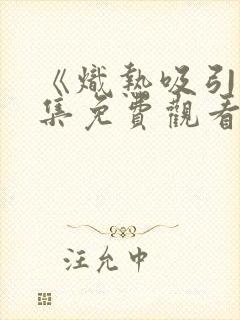 《熾熱吸引
集免費觀看
汪允中